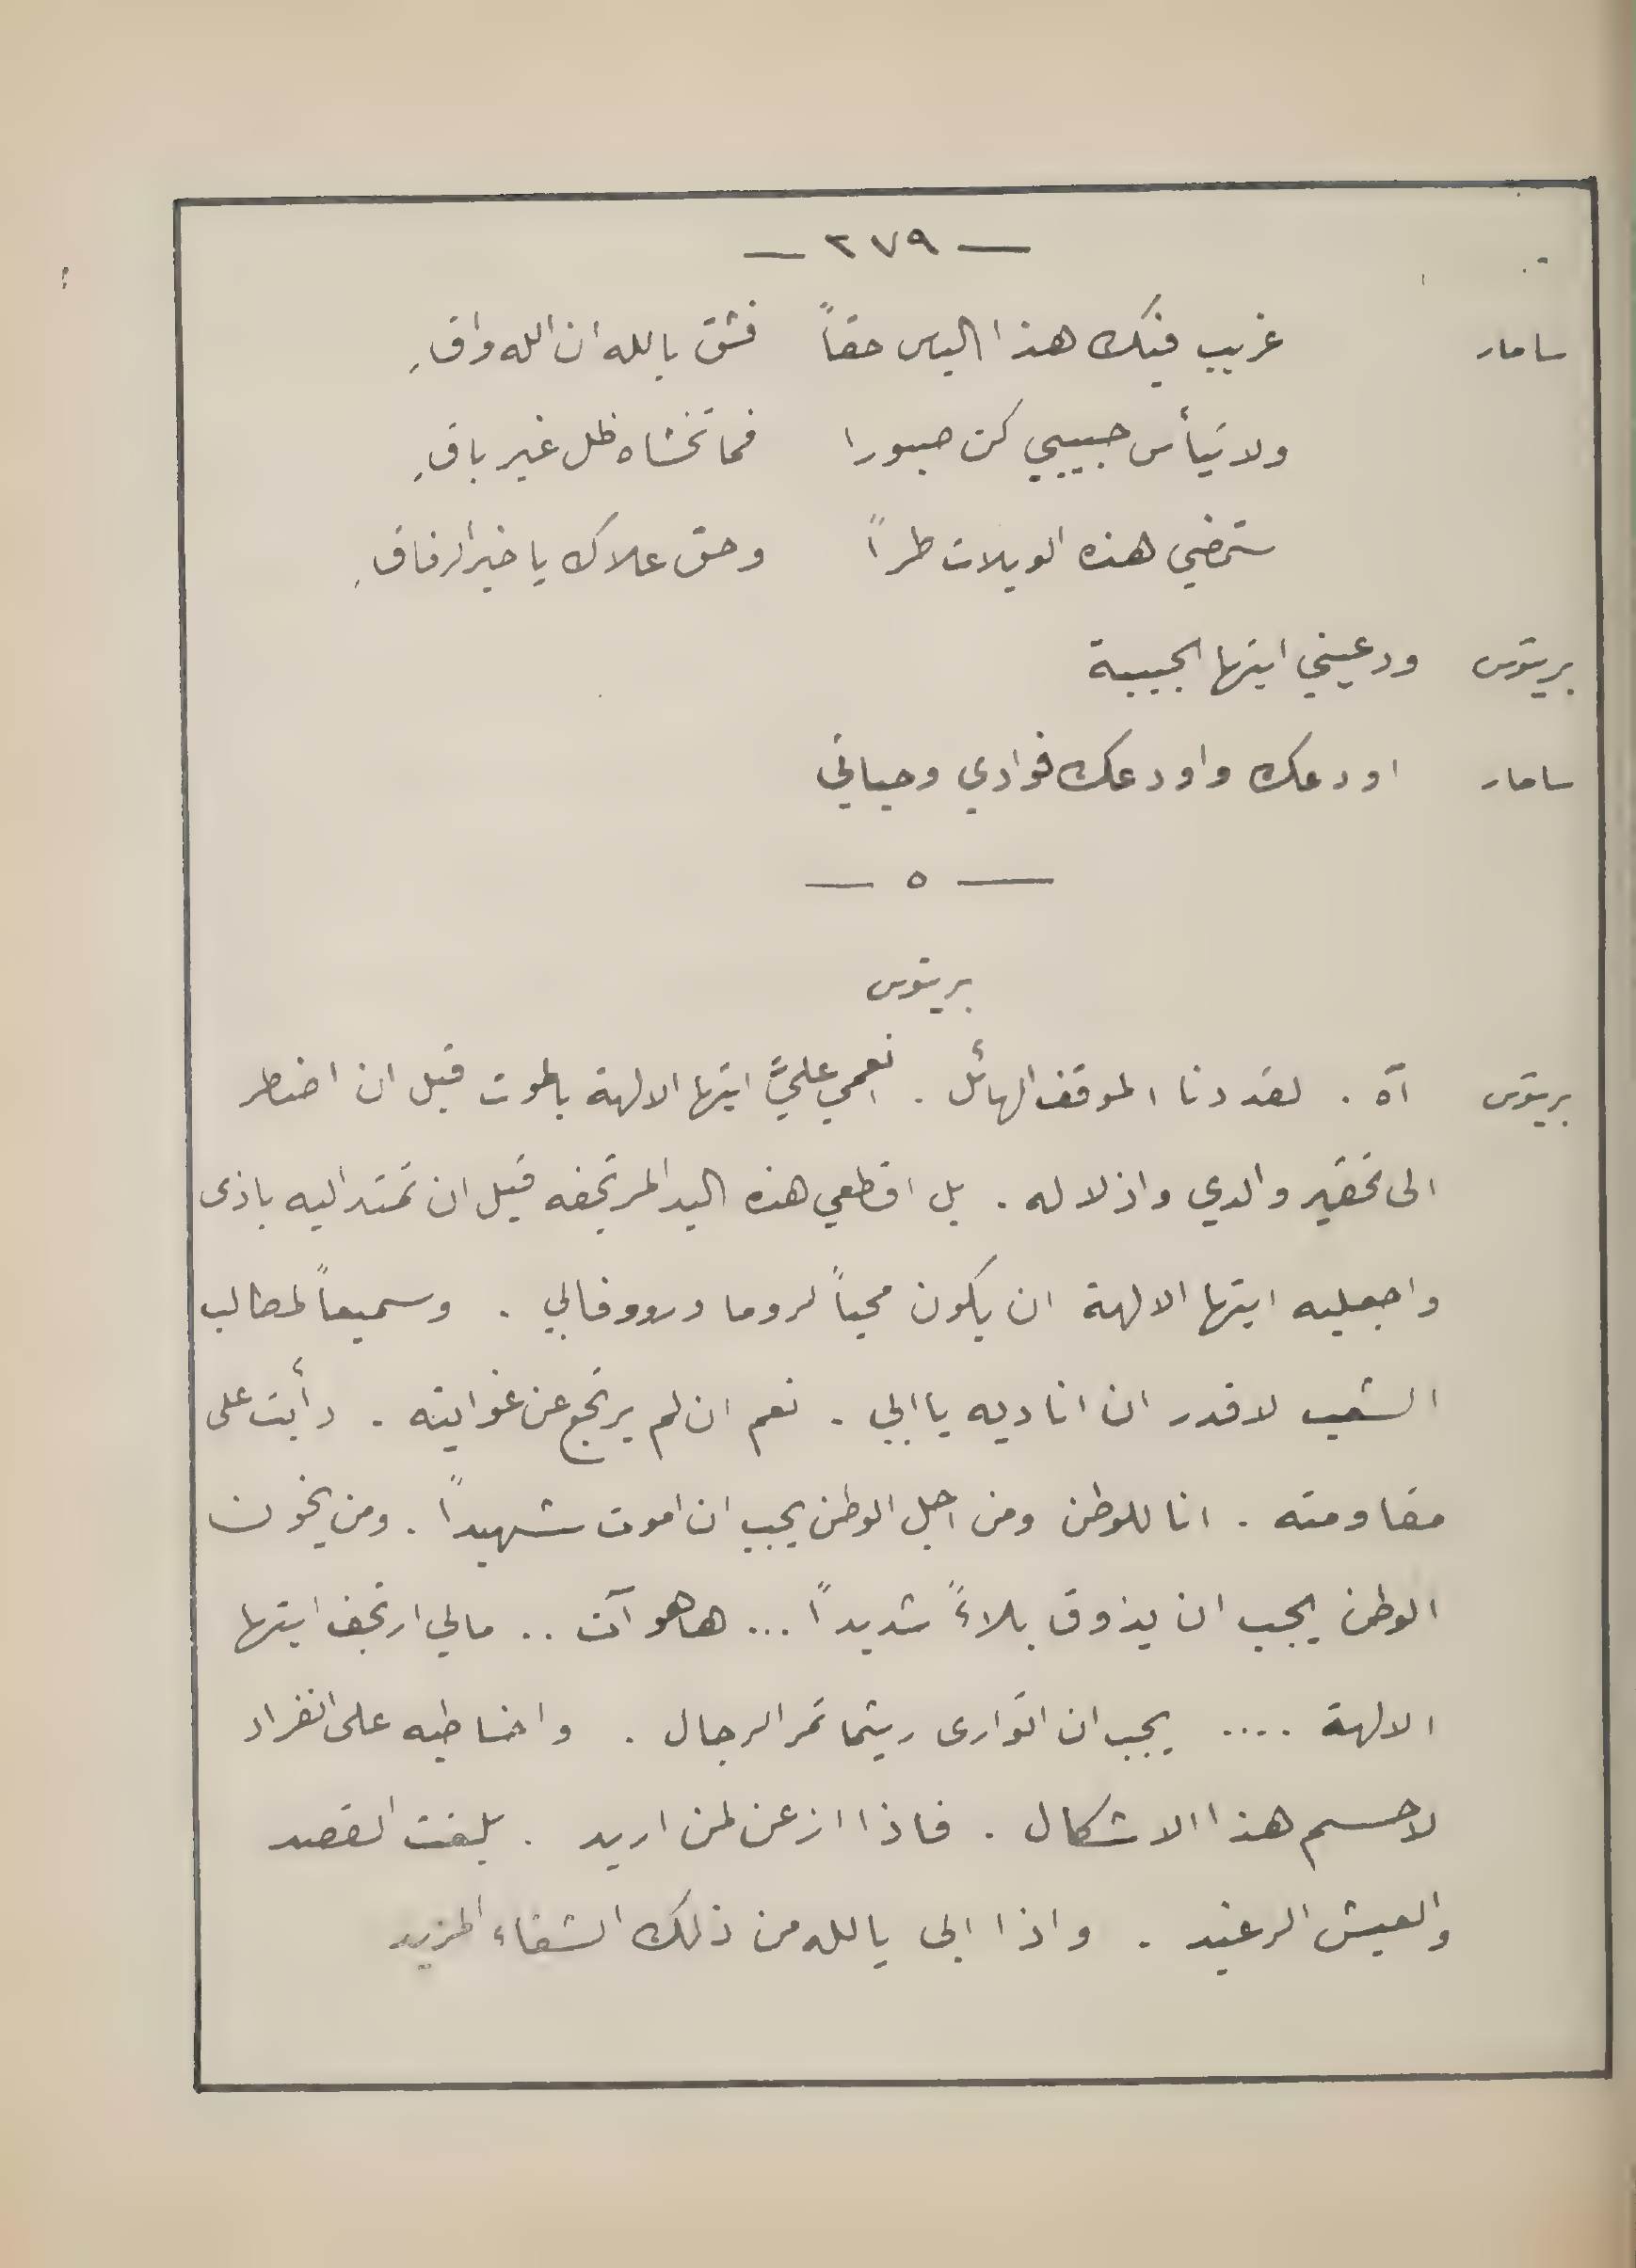 — ٢٧٩ —
سامار غريب فيك هذا الياس حقاً فثق بالله ان الله واقِ
ولا تيأس حبيبي كن صبورا فما تخشاه ظل غير باقِ
ستمضي هذه الويلات طراً وحق علاك يا خير الرفاقِ
بريتوس ودعيني ايتها الحبيبة
سامار اودعك واودعك فوادي وحياتي
— ٥ —
بريتوس
بريتوس آه . لقد دنا الموقف الهائل . انعمي عليَّ ايتها الالهة بالموت قبل ان اضطر
الى تحقير والدي واذلاله . بل اقطعي هذه اليد المرتجفه قبل ان تمتد اليه باذى
واجعليه ايتها الالهة ان يكون محباً لروما وروفالي . وسميعاً لمطالب
الشعب لاقدر ان اناديه يا ابي . نعم ان لم يرتجع عن غوايته . دأبت على
مقاومته . انا للوطن ومن اجل الوطن يجب ان اموت شهيداً . ومن يخون
الوطن يجب ان يذوق بلاءً شديداً ... ها هو آت .. مالي ارتجف ايتها
الالهة .... يجب ان اتوارى ريثما تمر الرجال . واخاطبه على انفراد
لاحسم هذا الاشكال . فاذا ازعن لمن اريد . بلغت القصد
والعيش الرغيد . واذا ابى يالله من ذلك الشقاء المزيد